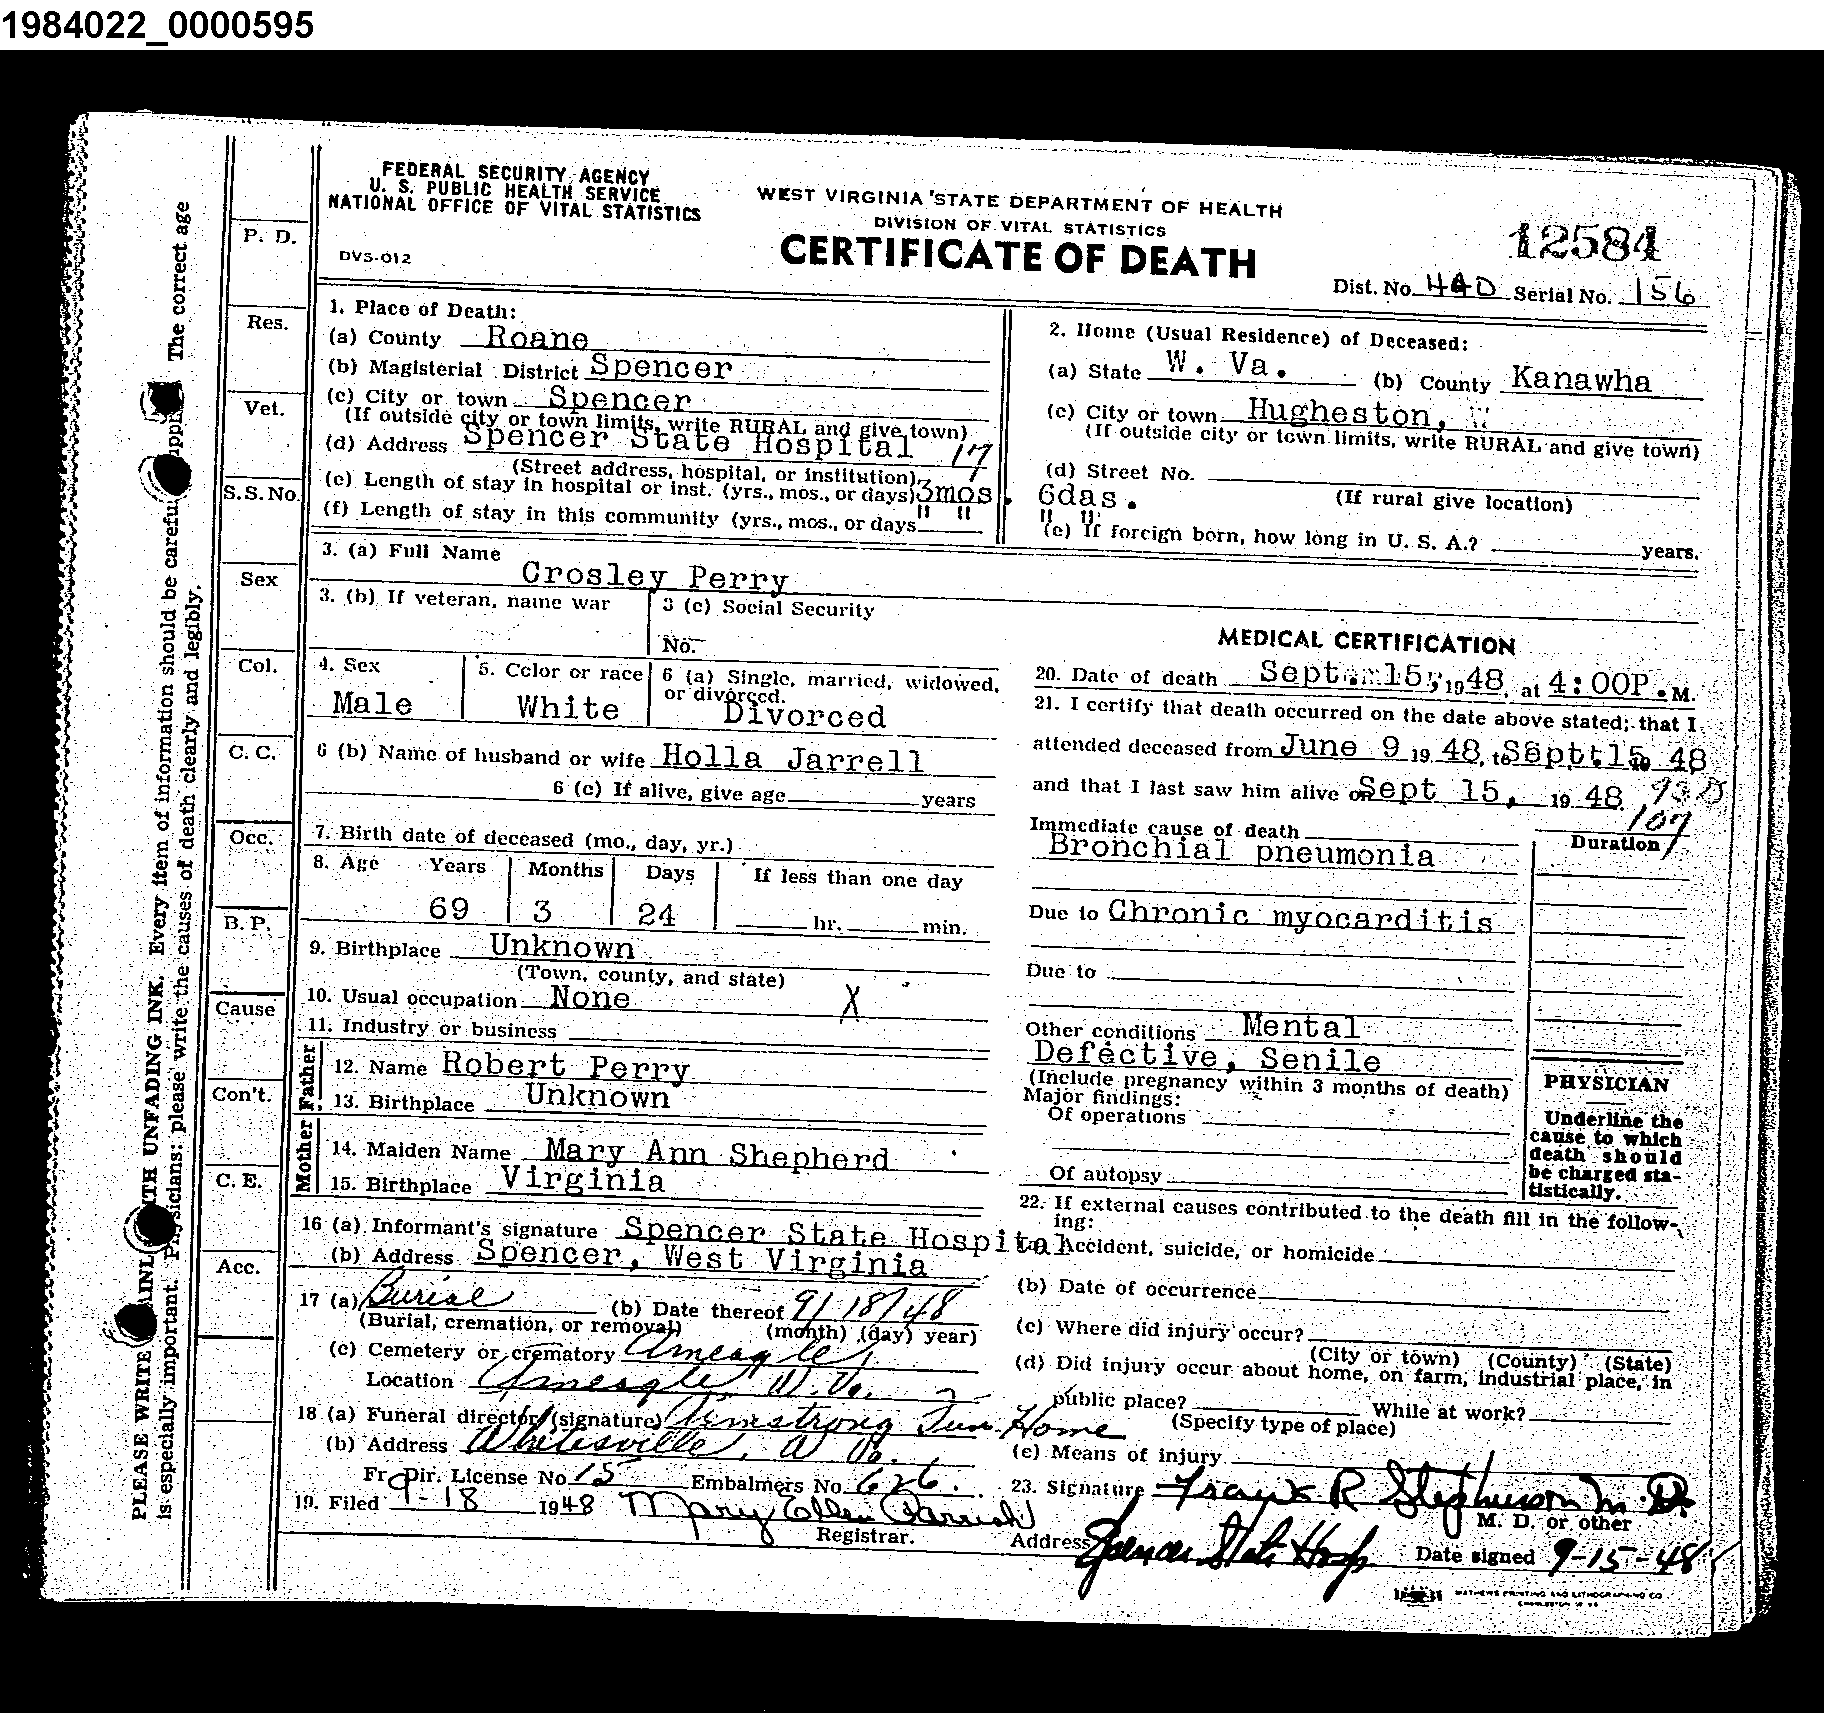 1984022_0000595
FEDERAL SECURITY AGENCY
U. S. PUBLIC HEALTH SERVICE
NATIONAL OFFICE OF VITAL STATISTICS
DVS-012
WEST VIRGINIA STATE DEPARTMENT OF HEALTH
DIVISION OF VITAL STATISTICS
CERTIFICATE OF DEATH
12584
Dist. No. 440 Serial No. 156
P. D.
Res.
Vet.
S.S. No.
Sex
Col.
C. C.
Occ.
B. P.
Cause
Con't.
C. E.
Acc.
PLEASE WRITE WITH UNFADING INK. Every item of information should be The correct age
is especially important. Physicians: please write the causes of death clearly and legibly.
1. Place of Death:
(a) County Roane
(b) Magisterial District Spencer
(c) City or town Spencer
(If outside city or town limits, write RURAL and give town)
(d) Address Spencer State Hospital 17
(Street address, hospital, or institution)
(e) Length of stay in hospital or inst. (yrs., mos., or days) 3mos. 6das.
(f) Length of stay in this community (yrs., mos., or days " " " "
2. Home (Usual Residence) of Deceased:
(a) State W. Va. (b) County Kanawha
(c) City or town Hugheston,
(If outside city or town limits, write RURAL and give town)
(d) Street No.
(If rural give location)
(e) If foreign born, how long in U. S. A.? years.
3. (a) Full Name Crosley Perry
3. (b) If veteran, name war
3 (c) Social Security
No.
4. Sex
Male
5. Color or race
White
6 (a) Single, married, widowed,
or divorced.
Divorced
6 (b) Name of husband or wife Holla Jarrell
6 (c) If alive, give age years
7. Birth date of deceased (mo., day, yr.)
8. Age Years Months Days If less than one day
69 3 24 hr. min.
9. Birthplace Unknown
(Town, county, and state)
10. Usual occupation None X
11. Industry or business
Father
12. Name Robert Perry
13. Birthplace Unknown
Mother
14. Maiden Name Mary Ann Shepherd
15. Birthplace Virginia
16 (a) Informant's signature Spencer State Hospital
(b) Address Spencer, West Virginia
17 (a) Burial (b) Date thereof 9/18/48
(Burial, cremation, or removal) (month) (day) year)
(c) Cemetery or crematory Ameagle
Location Ameagle W. Va.
18 (a) Funeral director (signature) Armstrong Fun. Home
(b) Address Whitesville, W Va.
Fr Dir. License No. 15 Embalmers No. 626.
19. Filed 9-18 1948 Mary Ellen Parrish
Registrar.
MEDICAL CERTIFICATION
20. Date of death Sept. 15, 1948, at 4:00P.M.
21. I certify that death occurred on the date above stated; that I
attended deceased from June 9 1948, to Sept. 15 1948
and that I last saw him alive on Sept 15, 1948
107
Immediate cause of death Duration
Bronchial pneumonia
Due to Chronic myocarditis
Due to
Other conditions Mental
Defective, Senile
(Include pregnancy within 3 months of death)
Major findings:
Of operations
Of autopsy
PHYSICIAN
Underline the
cause to which
death should
be charged sta-
tistically.
22. If external causes contributed to the death fill in the follow-
ing:
Accident, suicide, or homicide
(b) Date of occurrence
(c) Where did injury occur?
(City or town) (County) (State)
(d) Did injury occur about home, on farm, industrial place, in
public place? While at work?
(Specify type of place)
(e) Means of injury
23. Signature Frank R Stephenson M. D.
M. D. or other
Address Spencer State Hosp Date signed 9-15-48
MATHEWS PRINTING AND LITHOGRAPHING CO